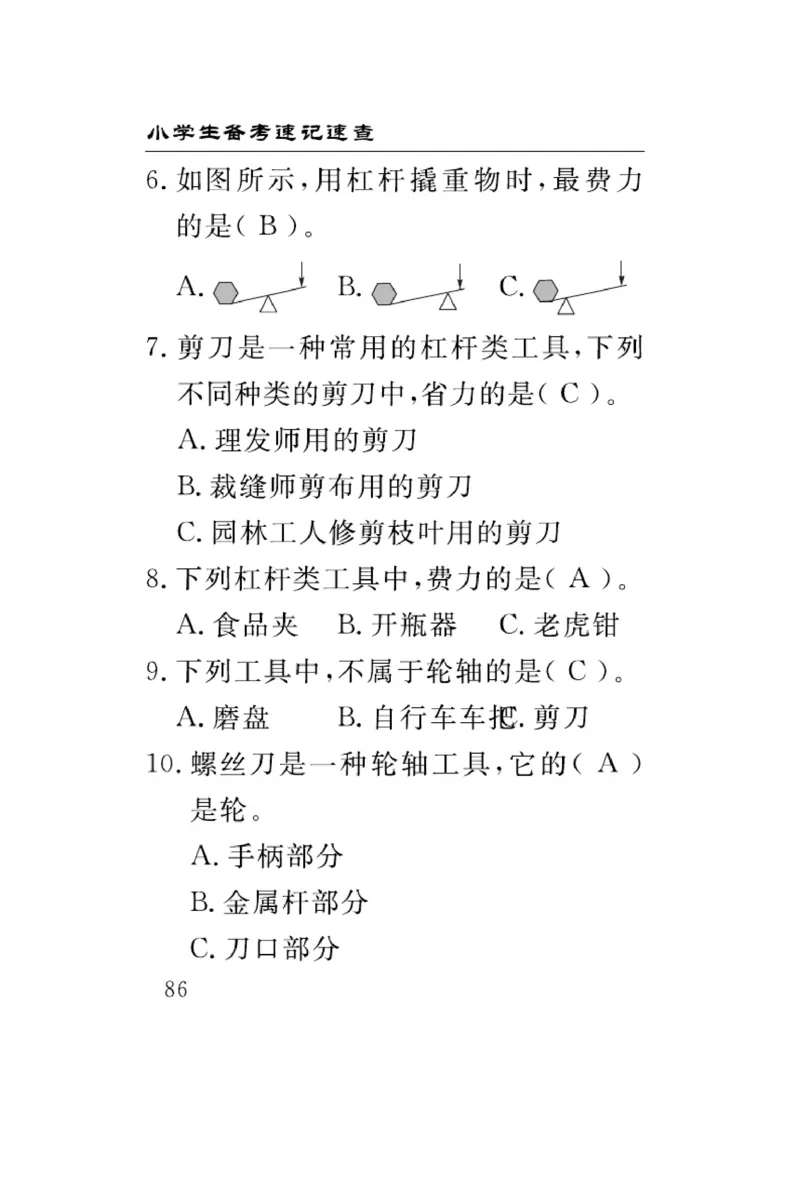 小学生备考速记速查
6. 如图所示,用杠杆撬重物时,最费力
的是( B )。
A. B. C.
7. 剪刀是一种常用的杠杆类工具,下列
不同种类的剪刀中,省力的是( C )。
A. 理发师用的剪刀
B. 裁缝师剪布用的剪刀
C. 园林工人修剪枝叶用的剪刀
8. 下列杠杆类工具中,费力的是( A )。
A. 食品夹 B. 开瓶器 C. 老虎钳
9. 下列工具中,不属于轮轴的是( C )。
A. 磨盘 B. 自行车车把 C. 剪刀
10. 螺丝刀是一种轮轴工具,它的( A )
是轮。
A. 手柄部分
B. 金属杆部分
C. 刀口部分
86